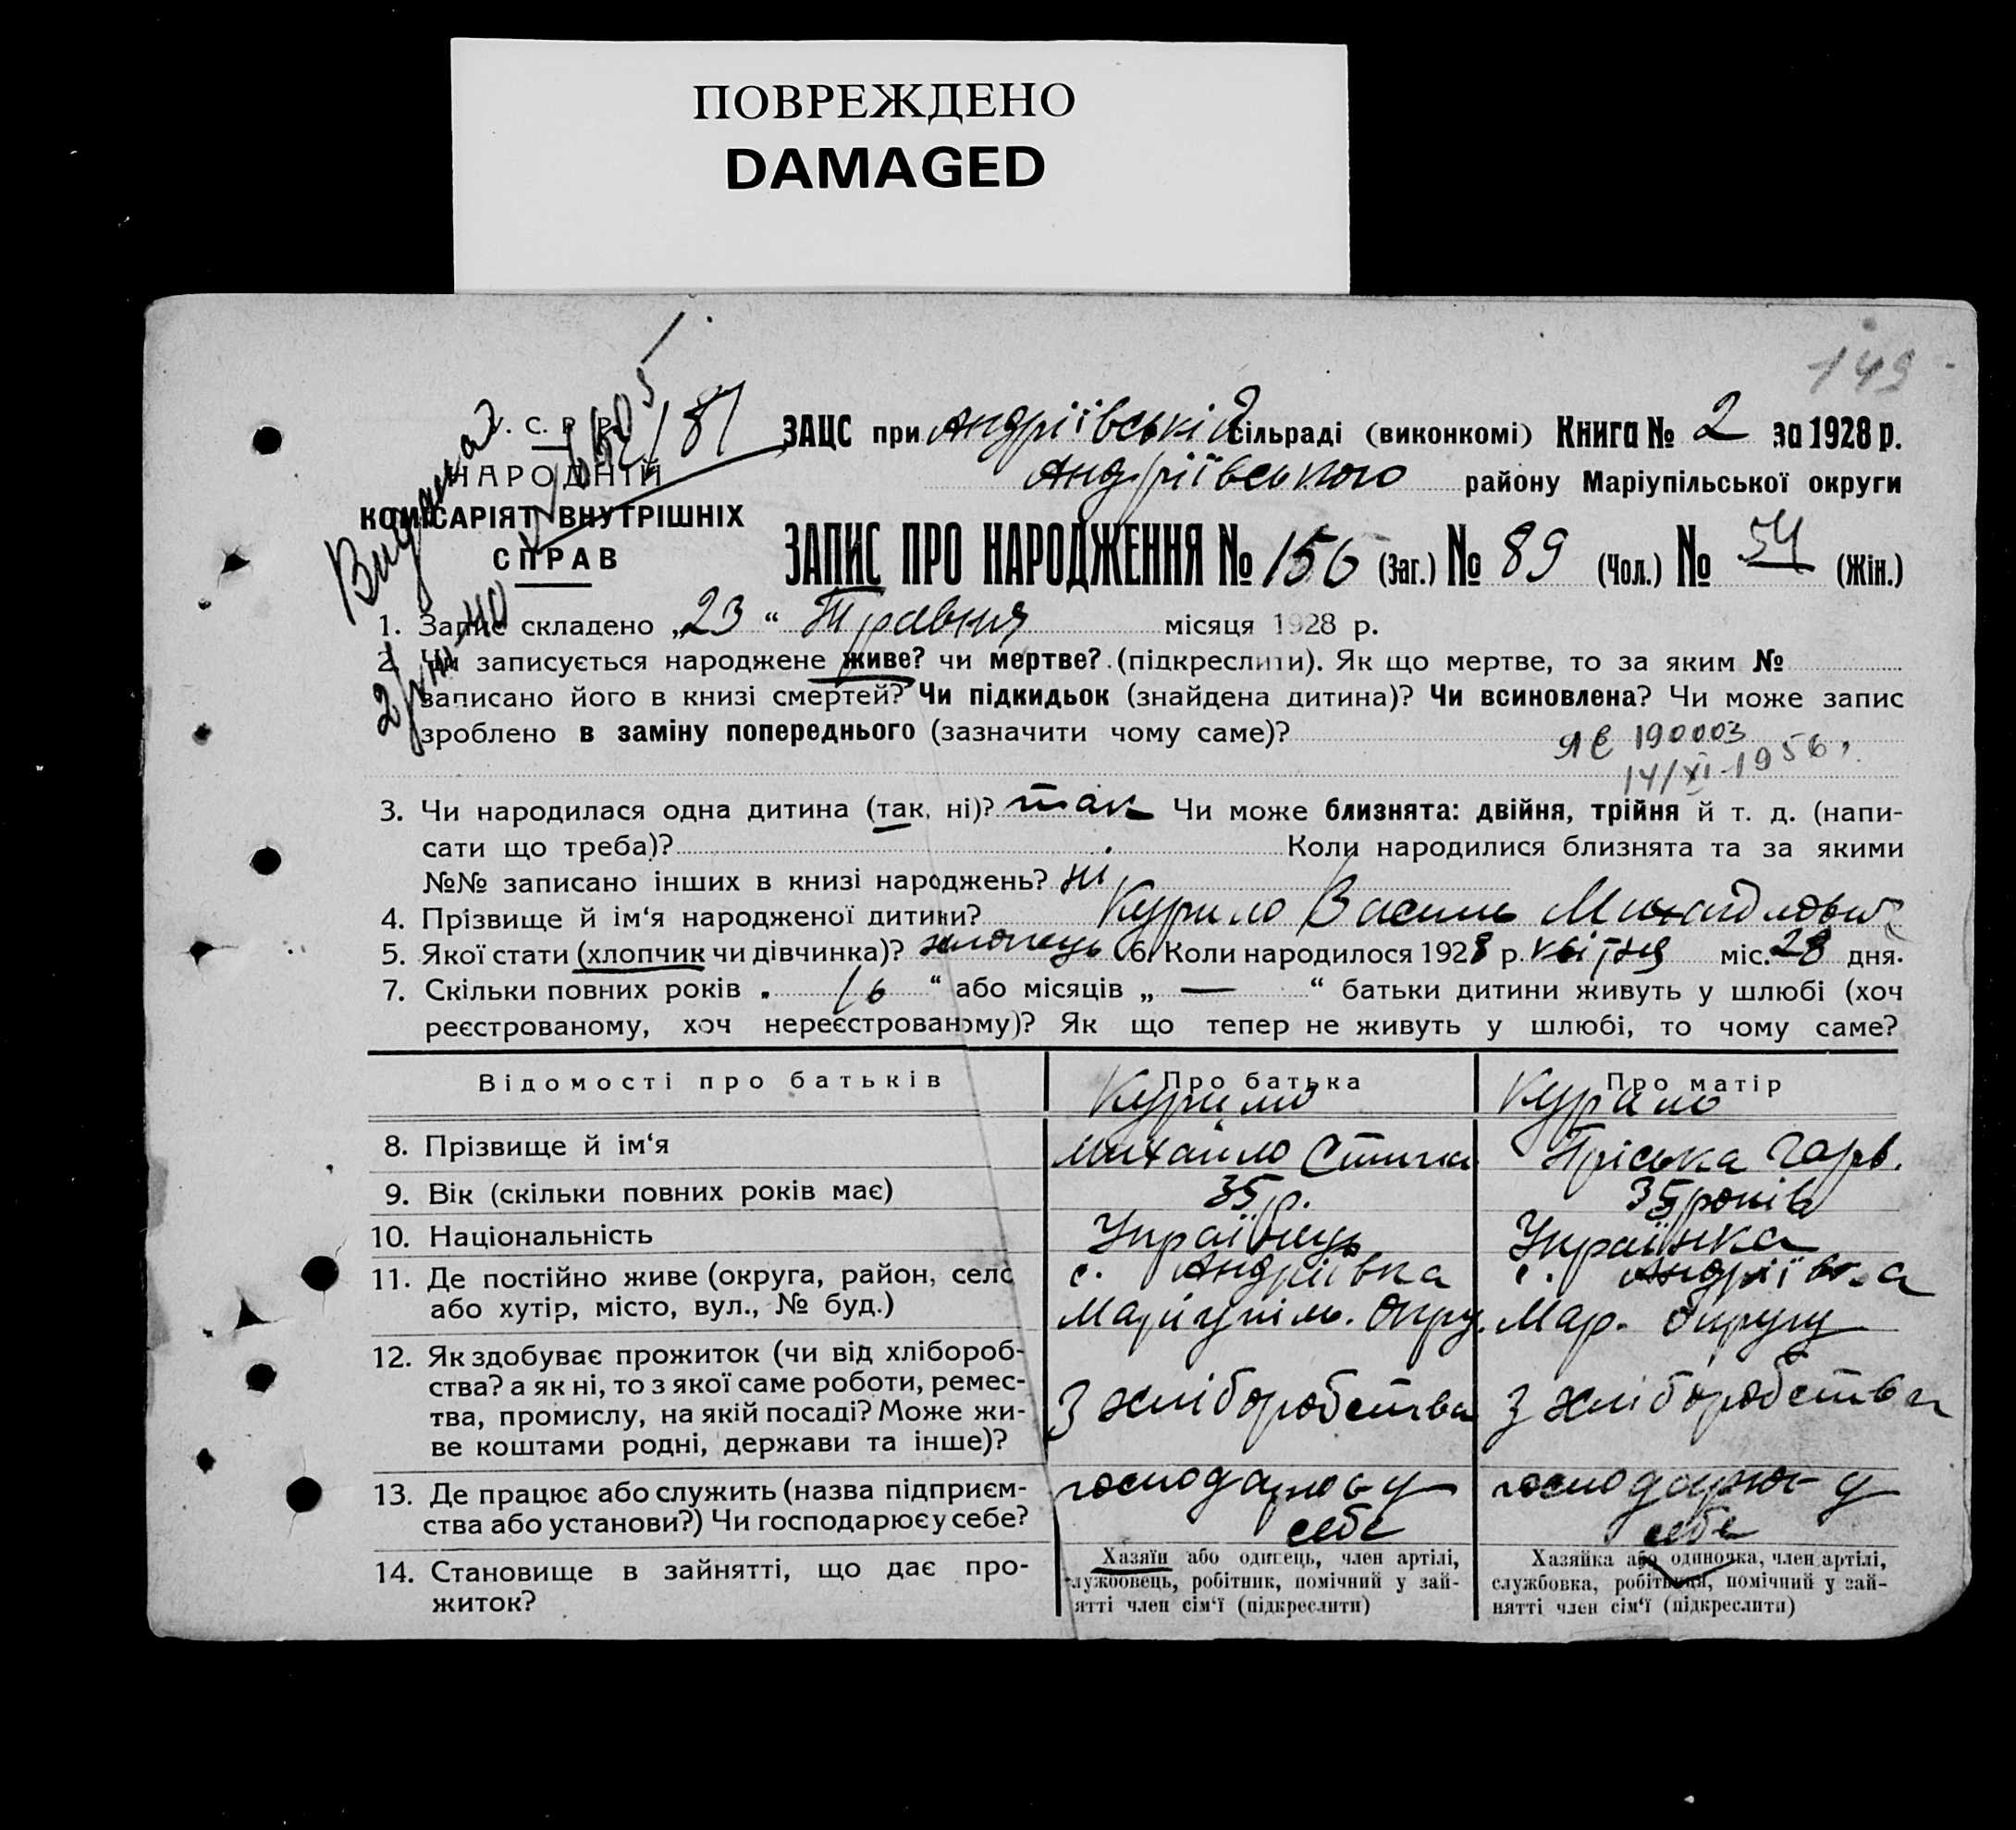 ПОВРЕЖДЕНО
DAMAGED
149
У. С. Р. Р.
НАРОДНІЙ
КОМІСАРІЯТ ВНУТРІШНІХ
СПРАВ
Видана
ЗАЦС при Андріївській сільраді (виконкомі) Книга № 2 за 1928 р.
Андріївського району Маріупільської округи
ЗАПИС ПРО НАРОДЖЕННЯ № 156 (Заг.) № 89 (Чол.) № (Жін.)
1. Запис складено „23“ Травня місяця 1928 р.
2. Чи записується народжене живе? чи мертве? (підкреслити). Як що мертве, то за яким №
записано його в книзі смертей? Чи підкидьок (знайдена дитина)? Чи всиновлена? Чи може запис
зроблено в заміну попереднього (зазначити чому саме)?
ЯЄ 190003
14/XI-1956г.
3. Чи народилася одна дитина (так, ні)? так Чи може близнята: двійня, трійня й т. д. (напи-
сати що треба)? Коли народилися близнята та за якими
№№ записано інших в книзі народжень? ні
4. Прізвище й ім‘я народженої дитини? Курило Василь Михайлович
5. Якої стати (хлопчик чи дівчинка)? хлопець 6. Коли народилося 1928 р. квітня міс. 28 дня.
7. Скільки повних років „ 16 “ або місяців „ — “ батьки дитини живуть у шлюбі (хоч
реєстрованому, хоч нереєстрованому)? Як що тепер не живуть у шлюбі, то чому саме?
Відомості про батьків Про батька Про матір
Курило Курило
8. Прізвище й ім‘я Михайло Пріська
9. Вік (скільки повних років має) 35 р. 35 років
10. Національність Українець Українка
11. Де постійно живе (округа, район, село с. Андріївка с. Андріївка
або хутір, місто, вул., № буд.) Маріупіль. Окру. Мар. Округу
12. Як здобуває прожиток (чи від хлібороб-
ства? а як ні, то з якої саме роботи, ремес-
тва, промислу, на якій посаді? Може жи- З хліборобства З хліборобства
ве коштами родні, держави та інше)?
13. Де працює або служить (назва підприєм- господарює у господарює у
ства або установи?) Чи господарює у себе? себе себе
14. Становище в зайнятті, що дає про-
житок?
Хазяїн або одинець, член артілі,
службовець, робітник, помічний у зай-
нятті член сім‘ї (підкреслити)
Хазяйка або одиночка, член артілі,
службовка, робітниця, помічний у зай-
нятті член сім‘ї (підкреслити)